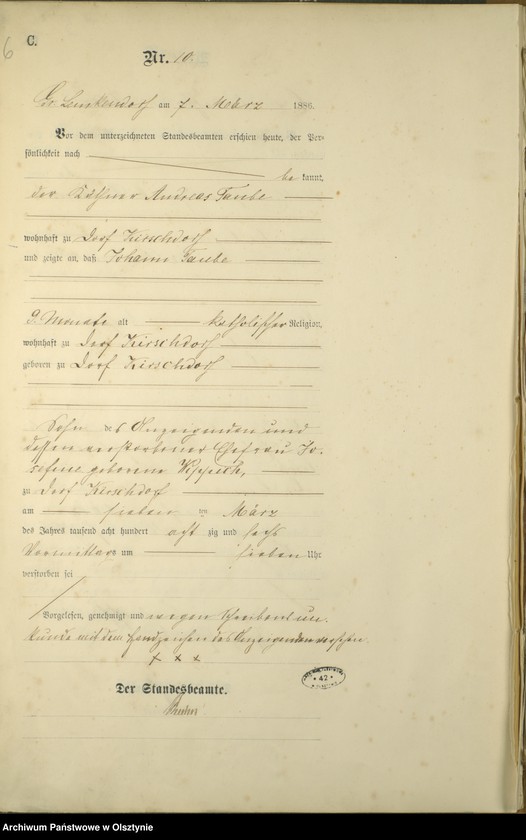 6
C.
Nr. 10.
Gr. Lemkendorf am 7. März 1886.
Vor dem unterzeichneten Standesbeamten erschien heute, der Per-
sönlichkeit nach
bekannt,
der Käthner Andreas Taube
wohnhaft zu Dorf Kirschdorf
und zeigte an, daß Johann Taube
Monate alt katholischer Religion,
wohnhaft zu Dorf Kirschdorf
geboren zu Dorf Kirschdorf
Sohn des Anzeigenden und
dessen verstorbener Ehefrau Jo-
sefine geborene
zu Dorf Kirschdorf
am sieben ten März
des Jahres tausend acht hundert achtzig und sechs
Vormittags um sieben Uhr
verstorben sei
Vorgelesen, genehmigt und wegen Schreibensun-
kunde mit dem Handzeichen des Anzeigenden versehen.
x x x
Der Standesbeamte.
42
Archiwum Państwowe w Olsztynie